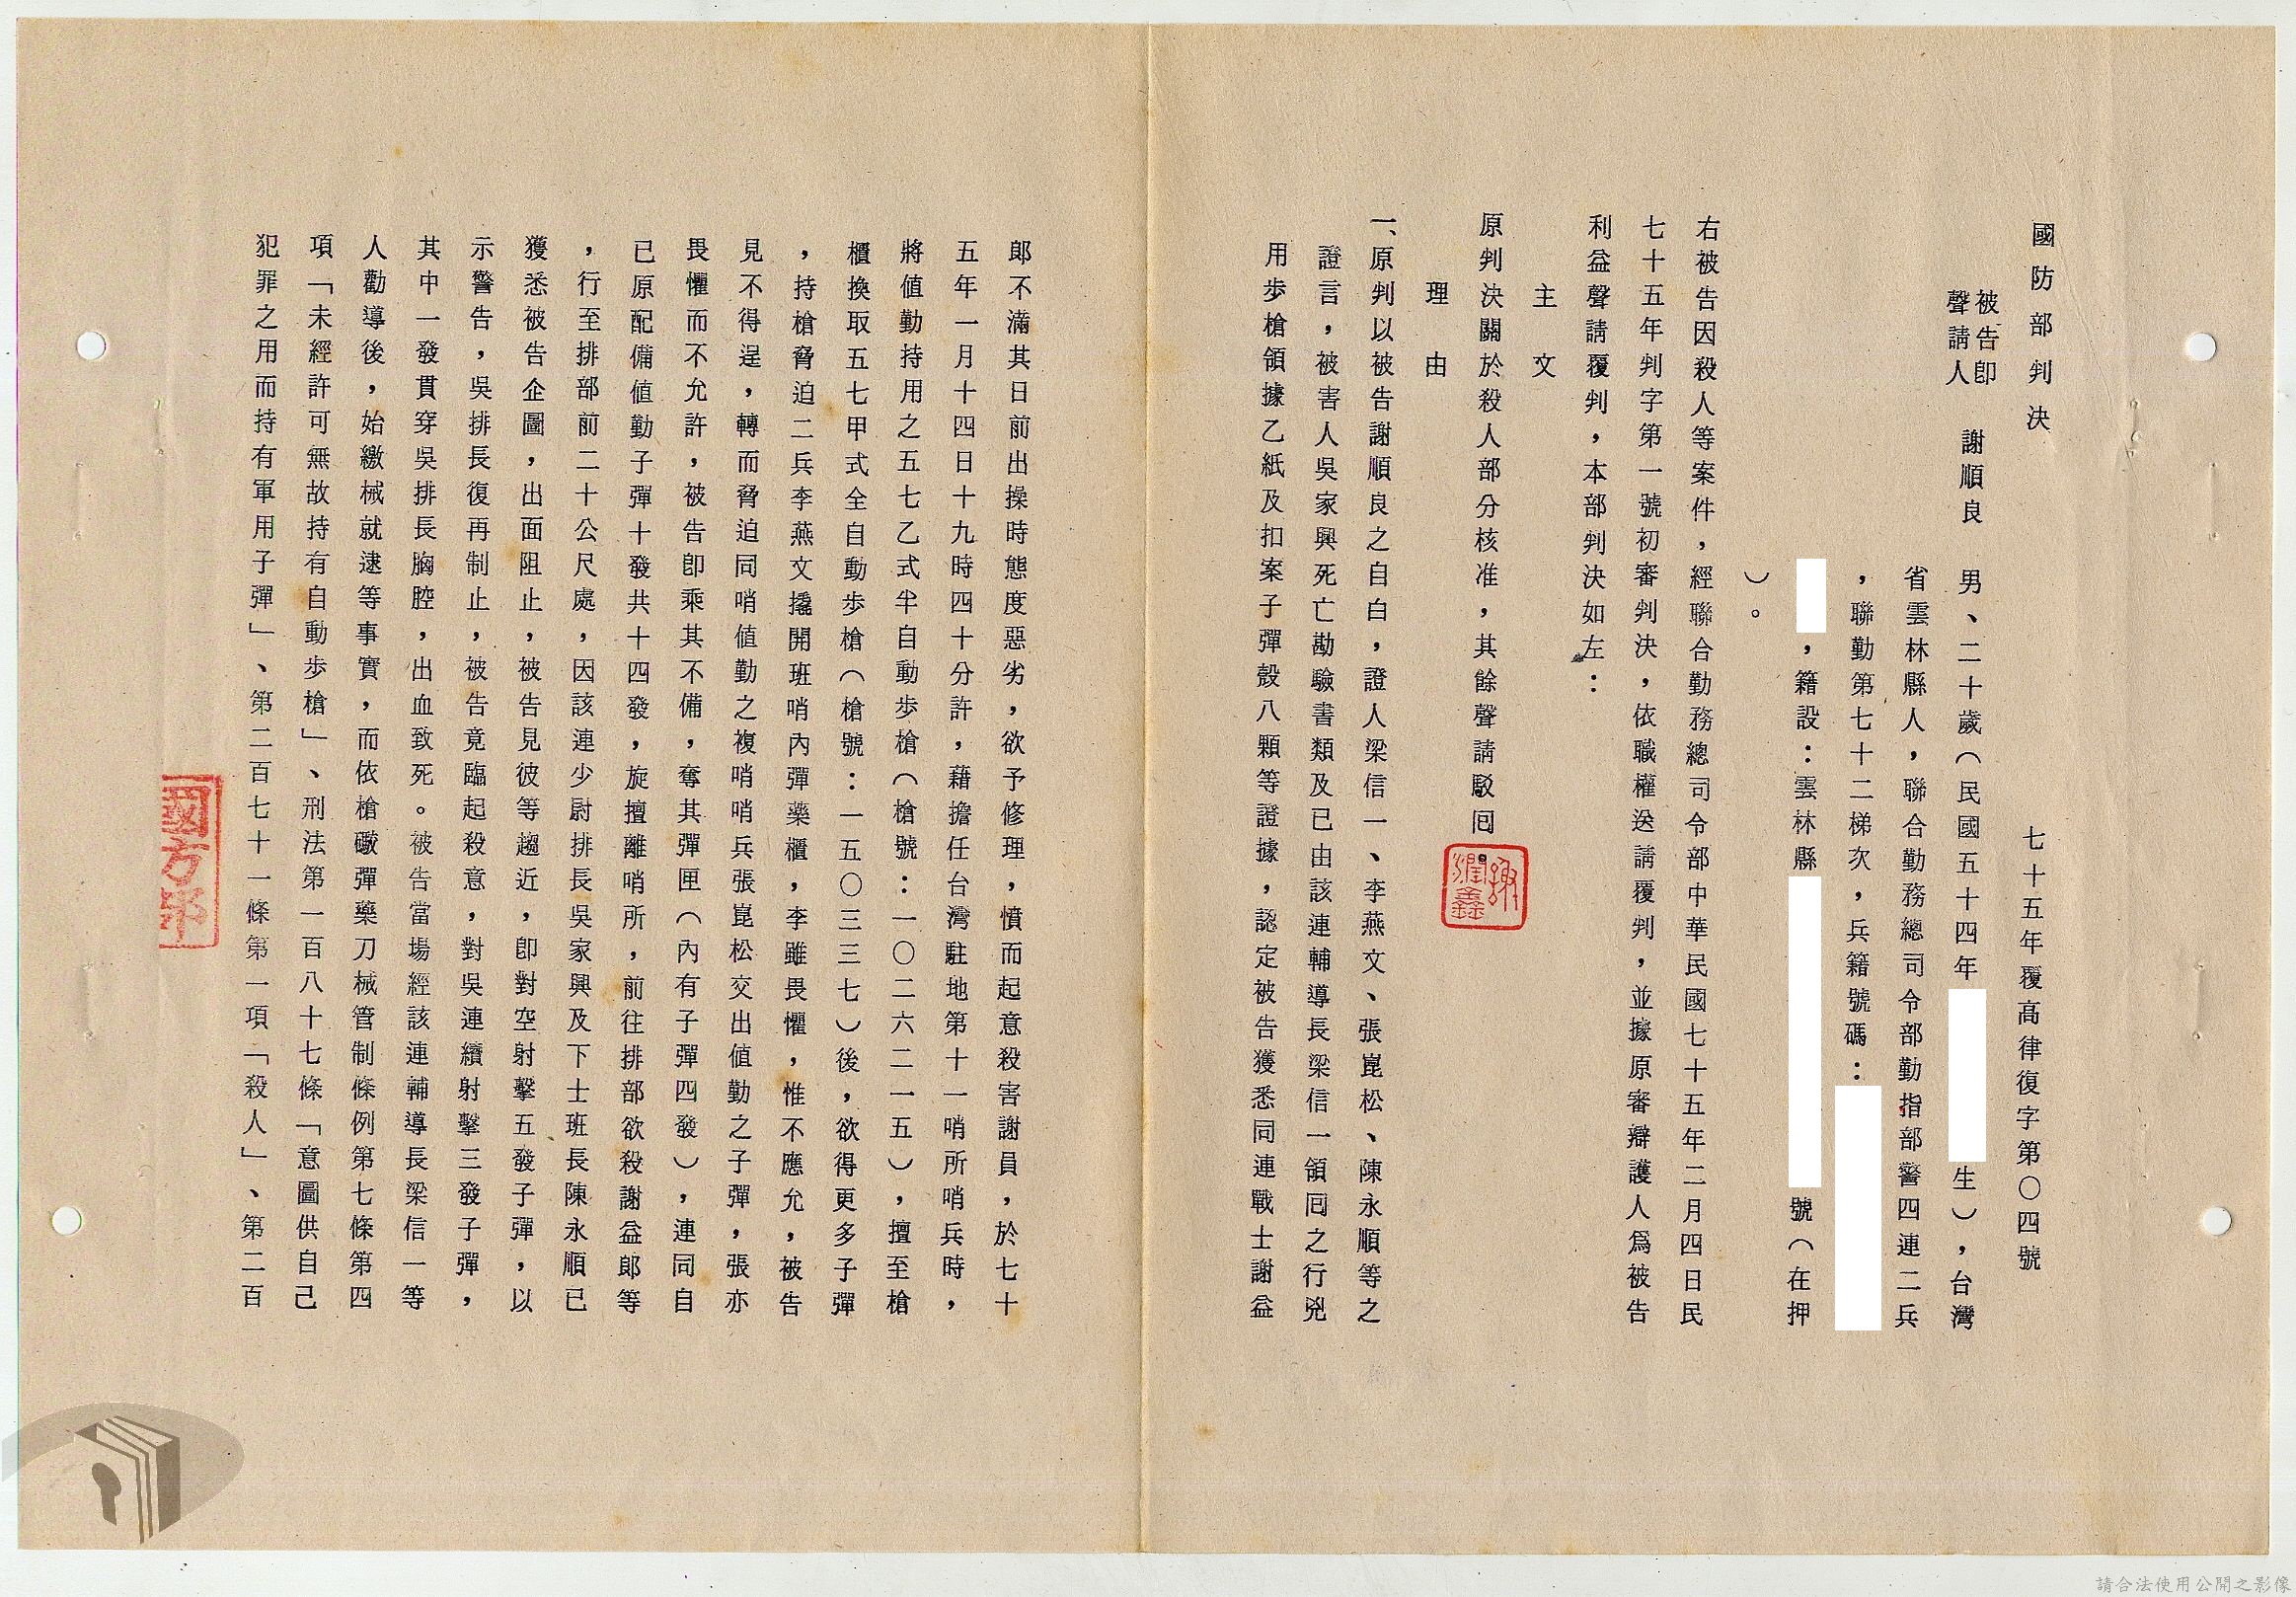 國防部判決
七十五年覆高律復字第〇四號
被告即
聲請人
謝順良
男、二十歲(民國五十四年
生),台灣
省雲林縣人,聯合勤務總司令部勤指部警四連二兵
,聯勤第七十二梯次,兵籍號碼:
,籍設:雲林縣
號(在押
)。
右被告因殺人等案件,經聯合勤務總司令部中華民國七十五年二月四日民
七十五年判字第一號初審判決,依職權送請覆判,並據原審辯護人爲被告
利益聲請覆判,本部判決如左:
主文
原判決關於殺人部分核准,其餘聲請駁回
謝潤鑫
理由
一、原判以被告謝順良之自白,證人梁信一、李燕文、張崑松、陳永順等之
證言,被害人吳家興死亡勘驗書類及已由該連輔導長梁信一領回之行兇
用步槍領據乙紙及扣案子彈殼八顆等證據,認定被告獲悉同連戰士謝益
郎不滿其日前出操時態度惡劣,欲予修理,憤而起意殺害謝員,於七十
五年一月十四日十九時四十分許,藉擔任台灣駐地第十一哨所哨兵時,
將值勤持用之五七乙式半自動步槍(槍號:一〇二六二一五),擅至槍
櫃換取五七甲式全自動步槍(槍號:一五〇三三七)後,欲得更多子彈
,持槍脅迫二兵李燕文撬開班哨內彈藥櫃,李雖畏懼,惟不應允,被告
見不得逞,轉而脅迫同哨值勤之複哨哨兵張崑松交出值勤之子彈,張亦
畏懼而不允許,被告即乘其不備,奪其彈匣(內有子彈四發),連同自
已原配備值勤子彈十發共十四發,旋擅離哨所,前往排部欲殺謝益郎等
,行至排部前二十公尺處,因該連少尉排長吳家興及下士班長陳永順已
獲悉被告企圖,出面阻止,被告見彼等趨近,即對空射擊五發子彈,以
示警告,吳排長復再制止,被告竟臨起殺意,對吳連續射擊三發子彈,
其中一發貫穿吳排長胸腔,出血致死。被告當場經該連輔導長梁信一等
人勸導後,始繳械就逮等事實,而依槍礮彈藥刀械管制條例第七條第四
項「未經許可無故持有自動步槍」、刑法第一百八十七條「意圖供自己
犯罪之用而持有軍用子彈」、第二百七十一條第一項「殺人」、第二百
國防部
請合法使用公開之影像